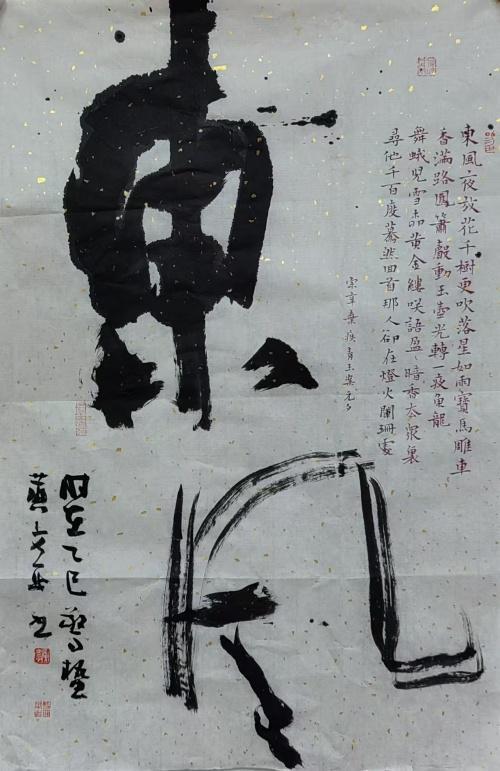 東風
東風夜放花千樹更吹落星如雨寶馬雕車
香滿路鳳簫聲動玉壺光轉一夜魚龍
舞蛾兒雪柳黃金縷咲語盈々暗香去衆裏
尋他千百度驀然回首那人卻在燈火闌珊處
宋辛棄疾青玉案元夕
時在乙巳驚蟄